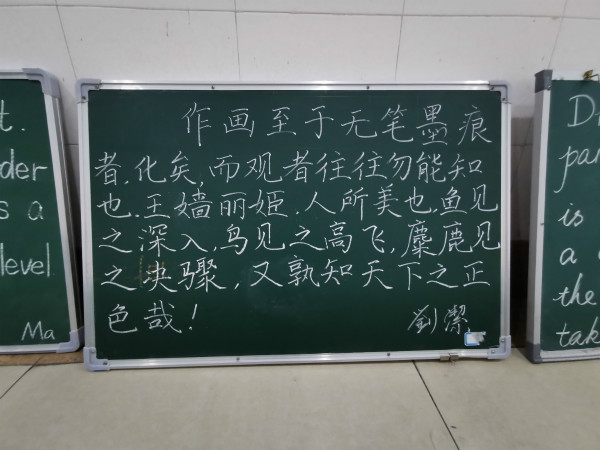 作画至于无笔墨痕
者,化矣,而观者往往勿能知
也,王嫱丽姬,人所美也,鱼见
之深入,鸟见之高飞,麋鹿见
之决骤,又孰知天下之正
色哉!
劉潔
t.
der
s a
level
Ma
par
is
a
the
tak